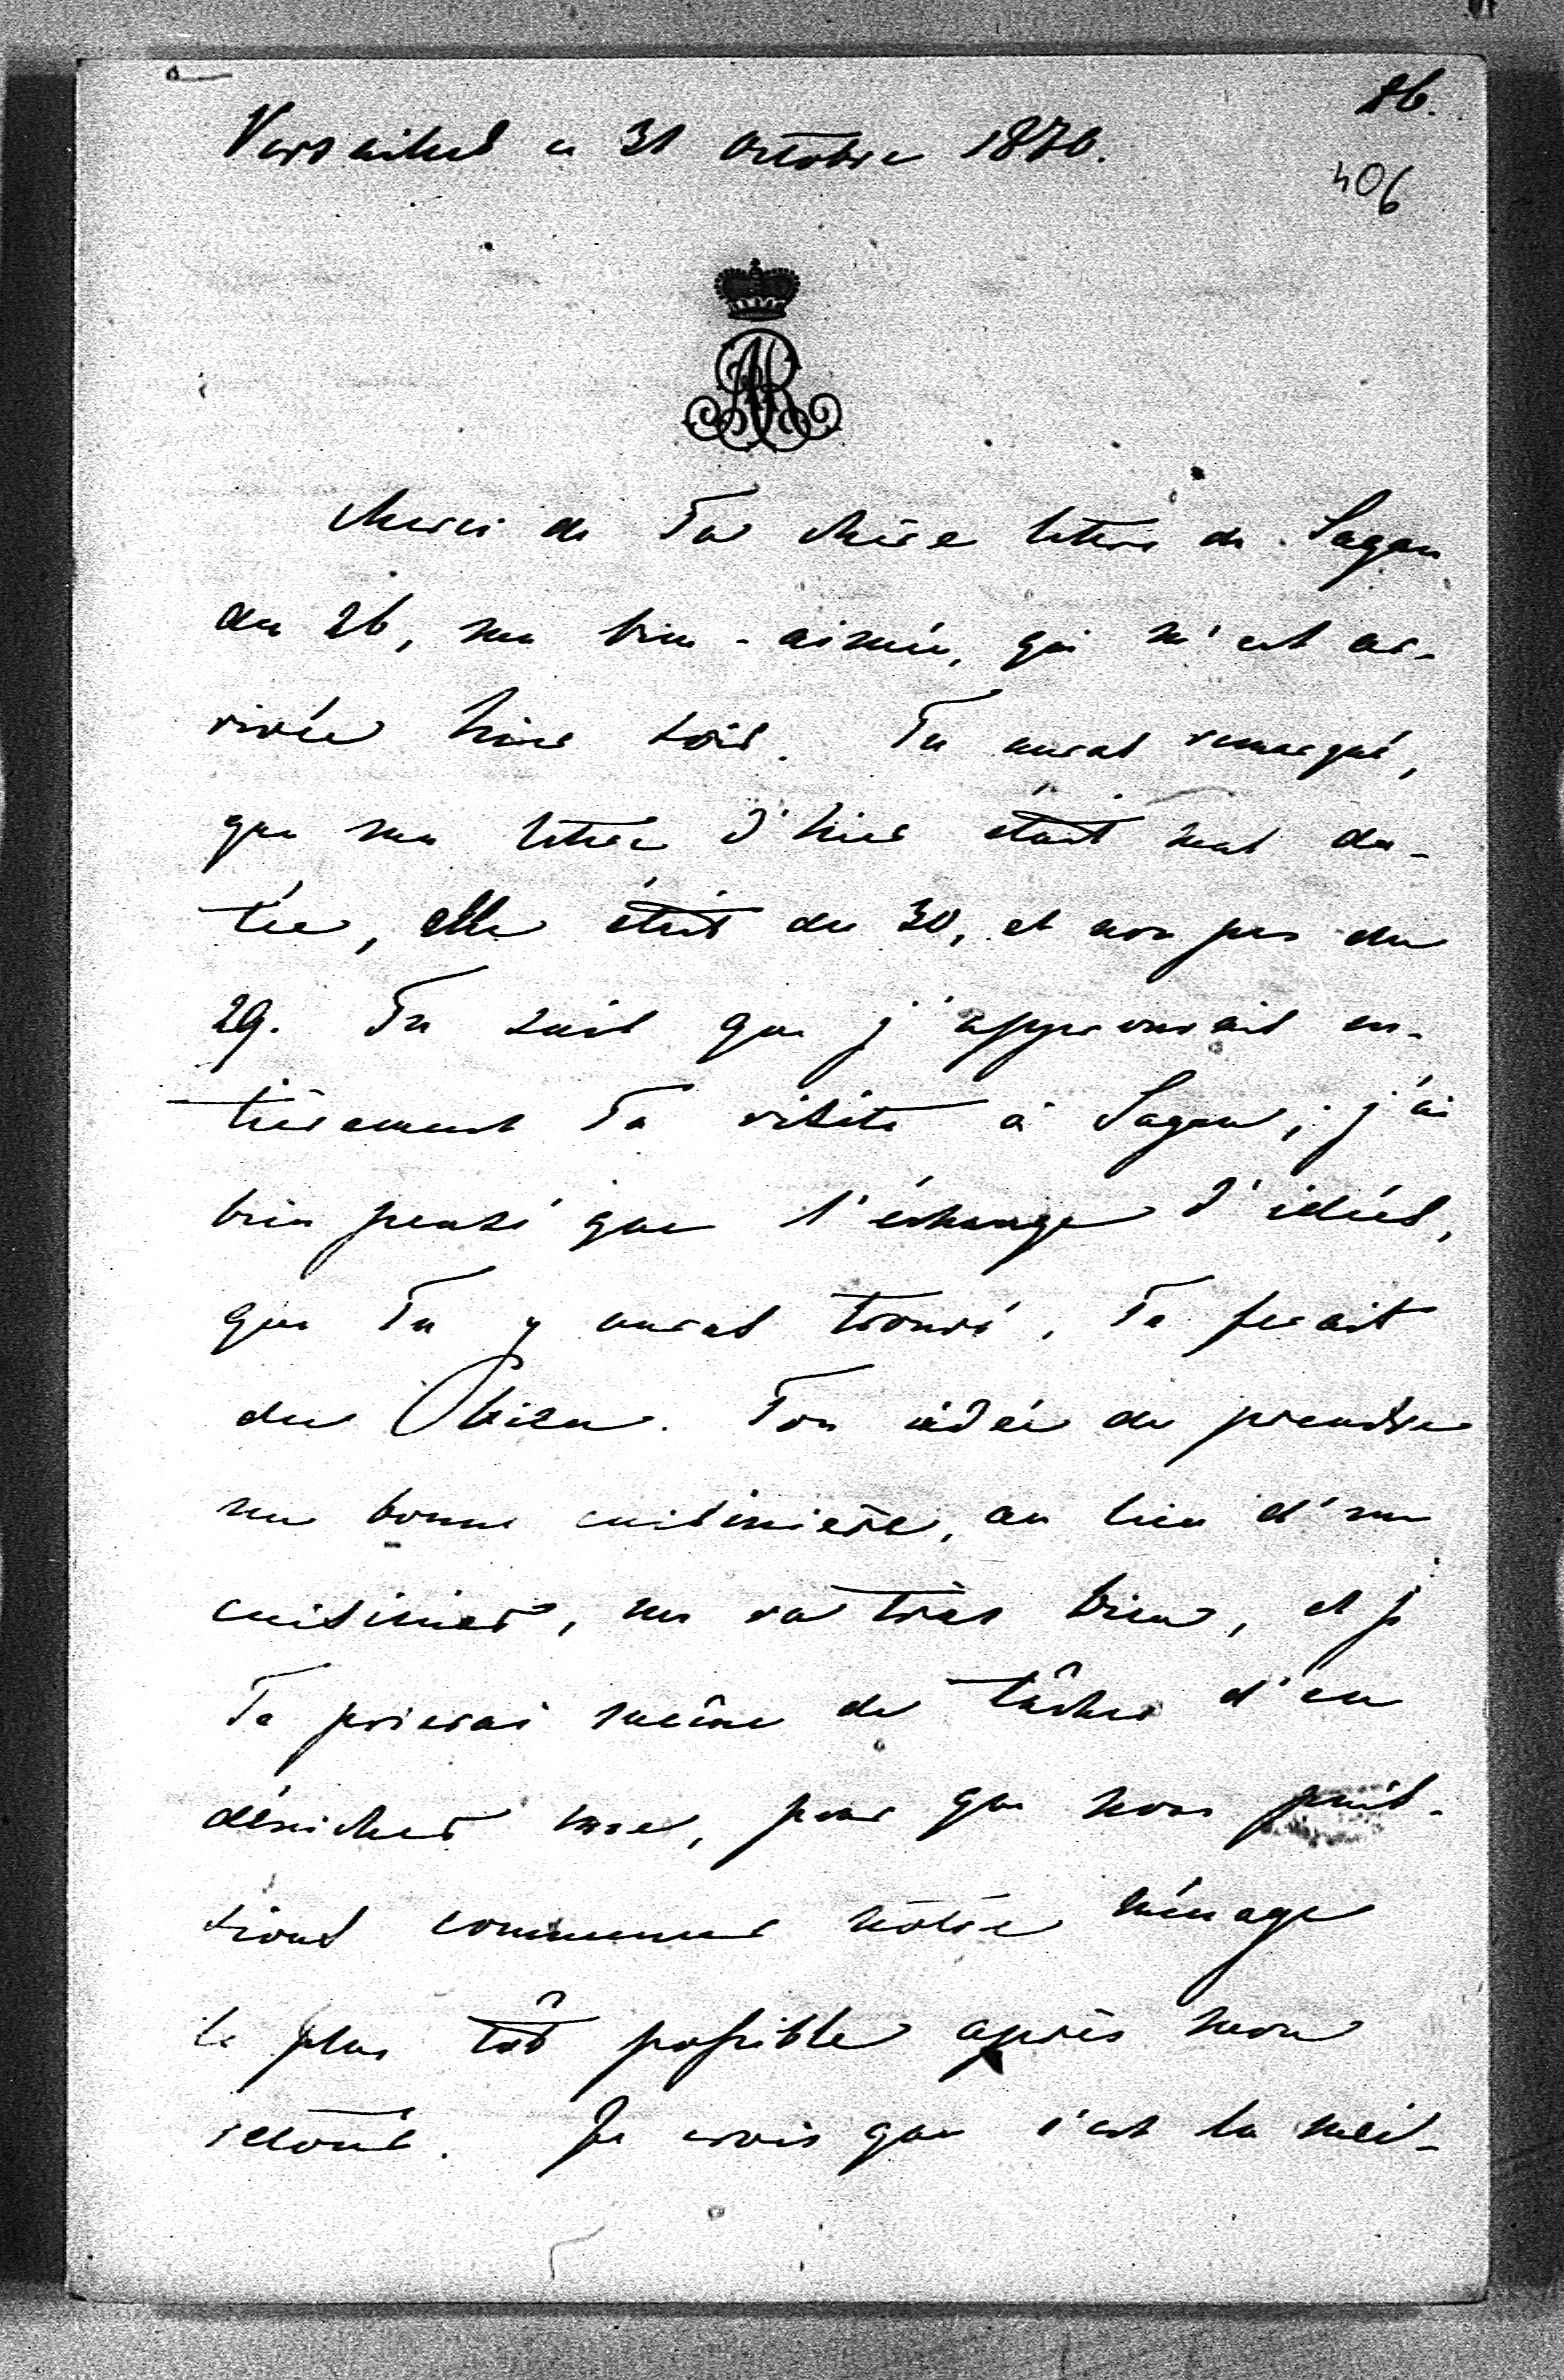 86.
Versailles ce 31 Octobre 1870.
406
AR
Merci de Ta chère lettre de Sagan
du 26, ma bien-aimée, qui m'est ar-
rivée hier soir. Tu auras remarqué,
que ma lettre d'hier était mal da-
tée, elle était du 30, et non pas du
29. Tu sais que j'approuvais en-
tièrement Ta visite à Sagan; j'ai
bien pensé que l'échange d'idées,
que Tu y auras trouvé, Te ferait
du Plaisir. Ton idée de prendre
une bonne cuisinière, au lieu d'un
cuisinier, me va très bien, et je
Te prierai même de tâcher d'en
dénicher une, pour que nous puis-
sions commencer nôtre ménage
le plus tôt possible après mon
retour. Je crois que c'est la meil-